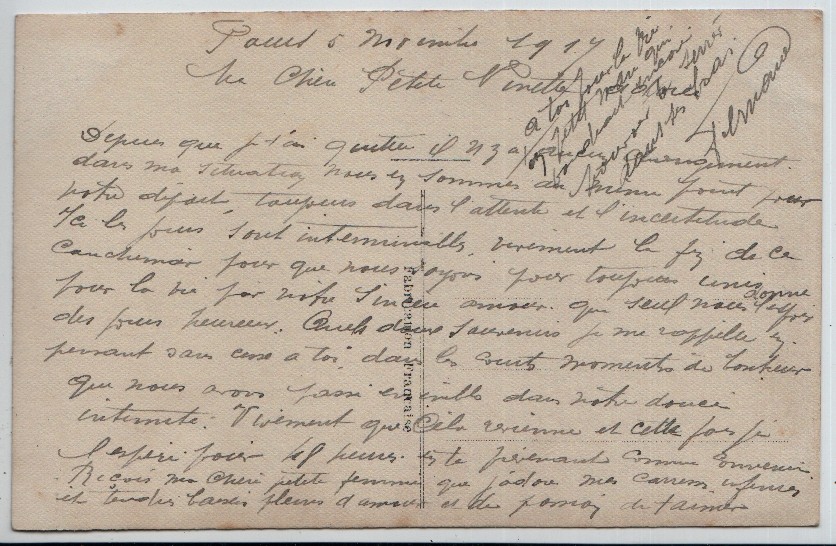 5 1917
Ma Chère Petite Ninette
Depuis que je t'ai quittée il n'y a aucun changement
dans ma situation nous en sommes au même point pour
notre départ, toujours dans l'attente et l'incertitude
Ici les jours sont interminables, vivement la fin de ce
Cauchemar pour que nous soyons pour toujours unis
pour la vie par notre sincère amour. que seul nous donne l'espoir
des jours heureux. Quels doux souvenirs je me rappelle en
pensant sans cesse à toi, dans les courts moments de bonheur
que nous avons passé ensemble dans notre douce
intimité. Vivement que cela revienne et cette fois je
l'espère pour 48 heures. en te prévenant comme convenu.
Reçois ma Chère petite femme que j'adore mes caresses infinies
et tendres baisers pleins d'amour et de passion de t'aimer
à toi pour la vie
ton petit mari qui
voudrait encore
pouvoir te serrer
dans ses bras.
Fernand
Fabrication Française